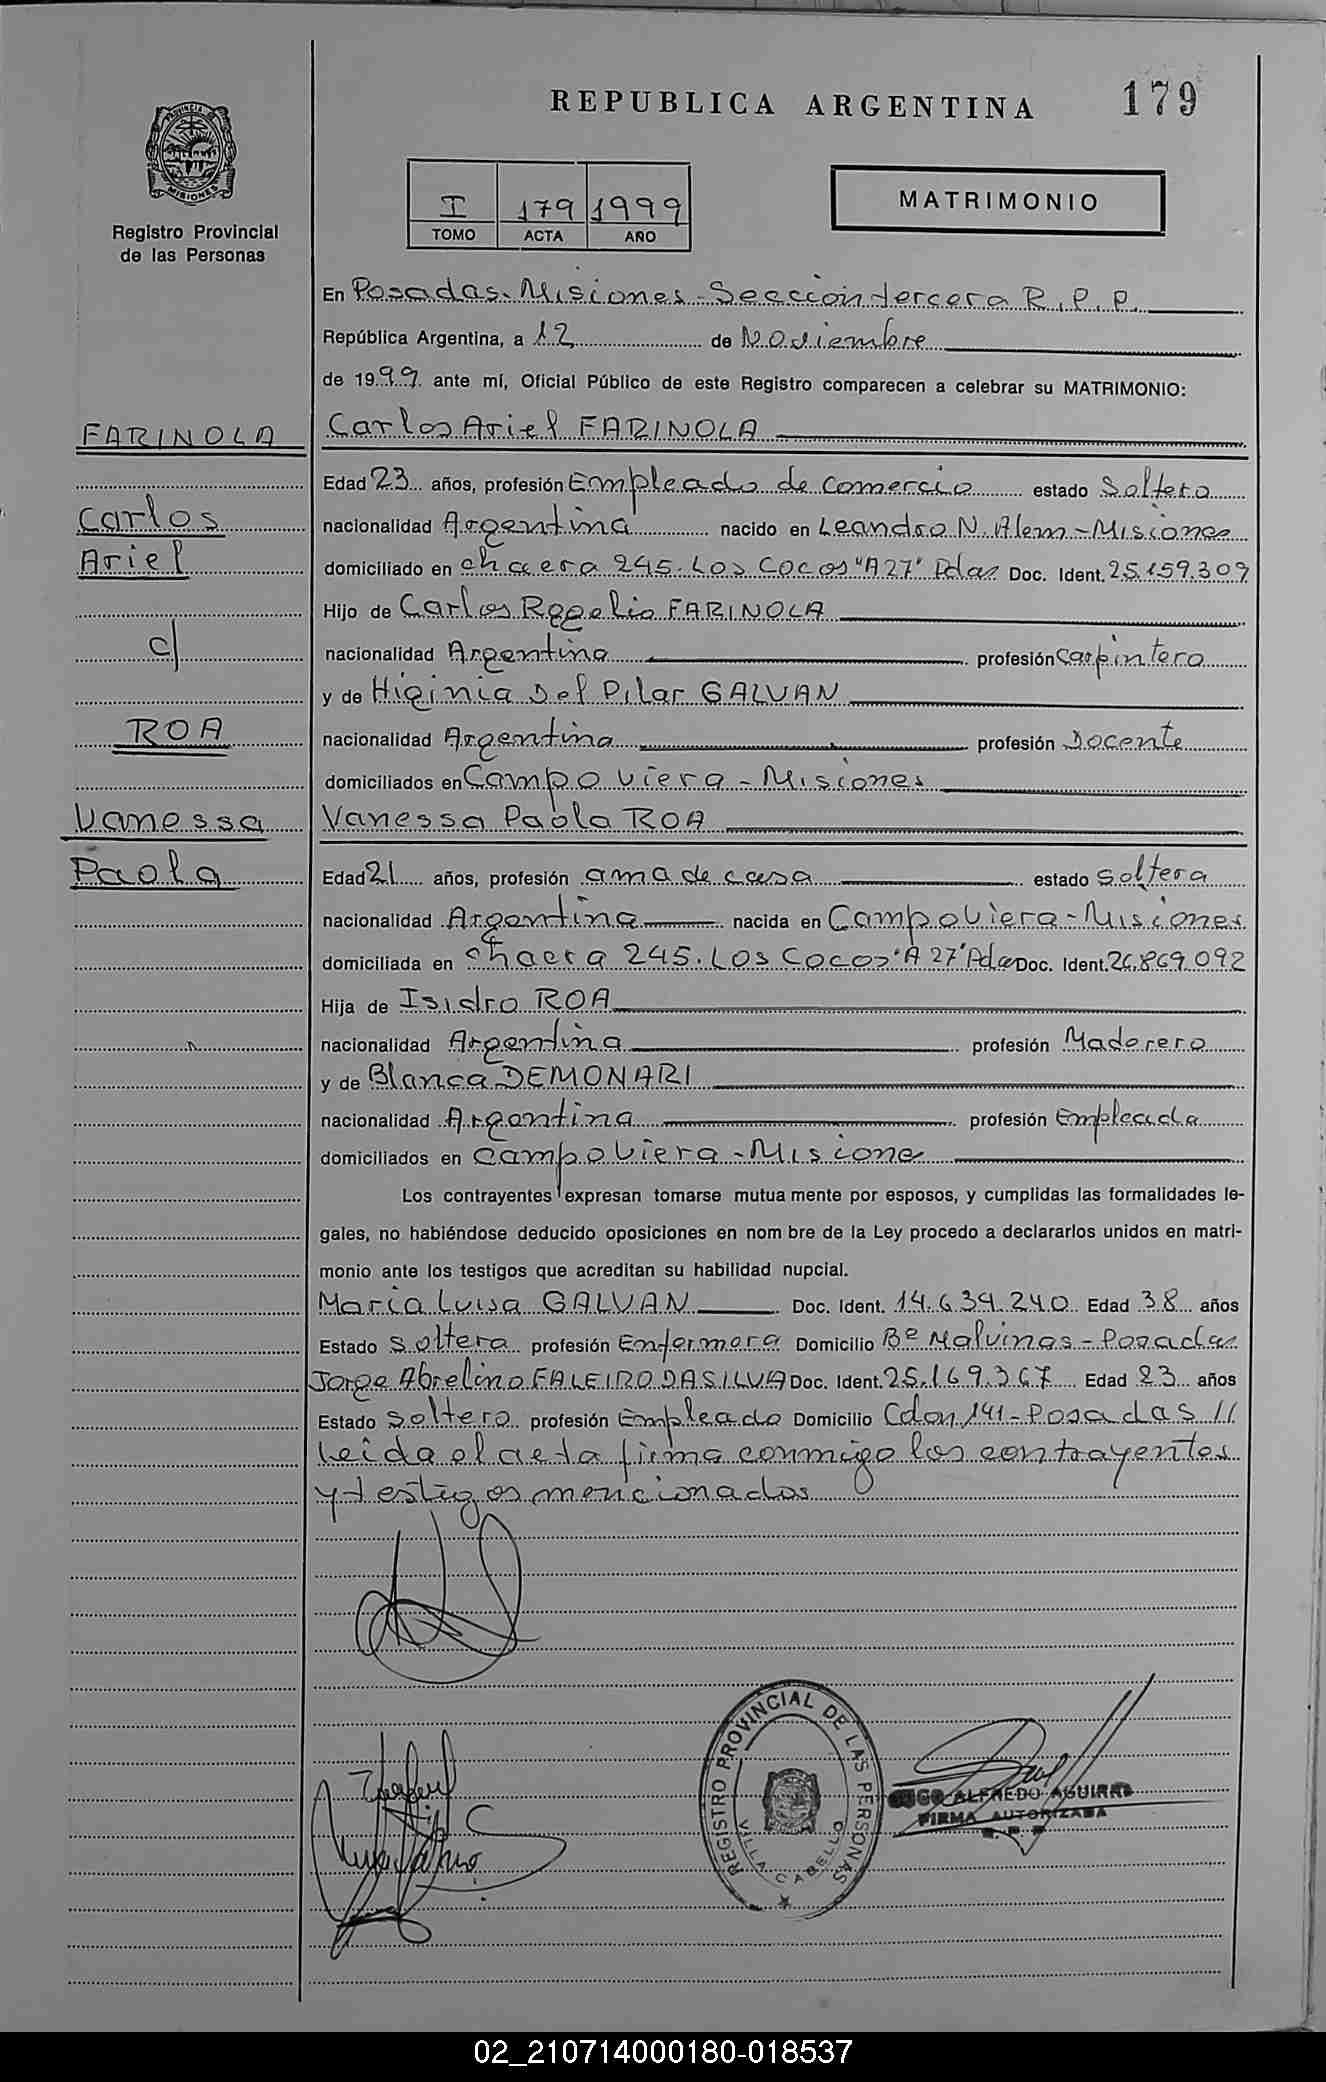 REPUBLICA ARGENTINA 179
PROVINCIA DE MISIONES
Registro Provincial
de las Personas
I 179 1999
TOMO ACTA AÑO
MATRIMONIO
En Posadas-Misiones-Sección tercera R.P.P.
República Argentina, a 12 de Noviembre
de 1999 ante mí, Oficial Público de este Registro comparecen a celebrar su MATRIMONIO:
FARINOLA
Carlos
Ariel
c/
ROA
Vanessa
Paola
Carlos Ariel FARINOLA
Edad 23 años, profesión Empleado de Comercio estado Soltero
nacionalidad Argentina nacido en Leandro N. Alem-Misiones
domiciliado en chacra 245. Los Cocos "A27" Pdas Doc. Ident. 25.159.309
Hijo de Carlos Rogelio FARINOLA
nacionalidad Argentina profesión Carpintero
y de Higinia Del Pilar GALVAN
nacionalidad Argentina profesión Docente
domiciliados en Campo Viera-Misiones
Vanessa Paola ROA
Edad 21 años, profesión ama de casa estado Soltera
nacionalidad Argentina nacida en Campo Viera-Misiones
domiciliada en chacra 245. Los Cocos "A 27" Doc. Ident. 26.869.092
Hija de Isidro ROA
nacionalidad Argentina profesión Maderero
y de Blanca DEMONARI
nacionalidad Argentina profesión Empleada
domiciliados en Campo Viera-Misione
Los contrayentes expresan tomarse mutua mente por esposos, y cumplidas las formalidades le-
gales, no habiéndose deducido oposiciones en nom bre de la Ley procedo a declararlos unidos en matri-
monio ante los testigos que acreditan su habilidad nupcial.
Maria Luisa GALVAN Doc. Ident. 14.639.240 Edad 38 años
Estado Soltera profesión Enfermera Domicilio Bº Malvinas-Posadas
Jorge Abrelino FALEIRO DA SILVA Doc. Ident. 25.169.367 Edad 23 años
Estado Soltero profesión Empleado Domicilio Cdon 141-Posadas //
Leida el acta firma conmigo los contrayentes
y testigos mencionados
REGISTRO PROVINCIAL DE LAS PERSONAS
VILLA CABELLO
ALFREDO AGUIRRE
FIRMA AUTORIZADA
02_210714000180-018537